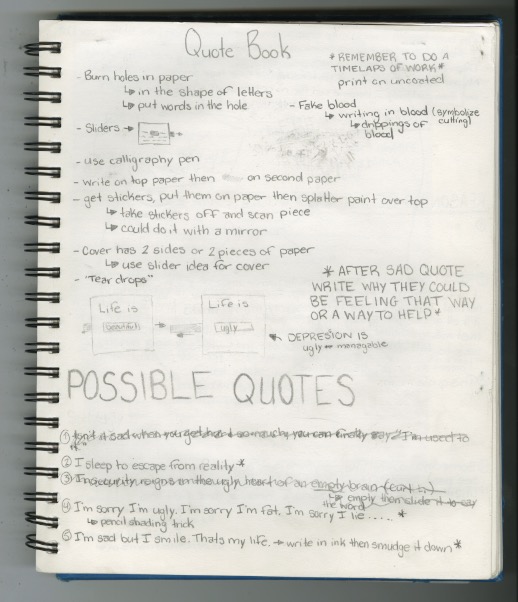 Quote Book
*REMEMBER TO DO A
TIMELAPS OF WORK*
print on uncoated
- Burn holes in paper
↳ in the shape of letters
↳ put words in the hole
- Fake blood
↳ writing in blood (symbolize
cutting)
↳ drippings of
blood
- Sliders →
- use calligraphy pen
- write on top paper then on second paper
- get stickers, put them on paper then splatter paint over top
↳ take stickers off and scan piece
↳ could do it with a mirror
- Cover has 2 sides or 2 pieces of paper
↳ use slider idea for cover
- "Tear drops"
* AFTER SAD QUOTE
WRITE WHY THEY COULD
BE FEELING THAT WAY
OR A WAY TO HELP*
Life is
beautiful
Life is
ugly
DEPRESION IS
ugly → manageable
POSSIBLE QUOTES
① Isn't it sad when you get hurt so much, you can finally say "I'm used to
it."
② I sleep to escape from reality *
③ Insecurity reigns on the ugly heart of an empty brain
↳ empty then slide it to say
the word
④ I'm sorry I'm ugly. I'm sorry I'm fat. I'm sorry I lie.... *
↳ pencil shading trick
⑤ I'm sad but I smile. Thats my life. → write in ink then smudge it down *